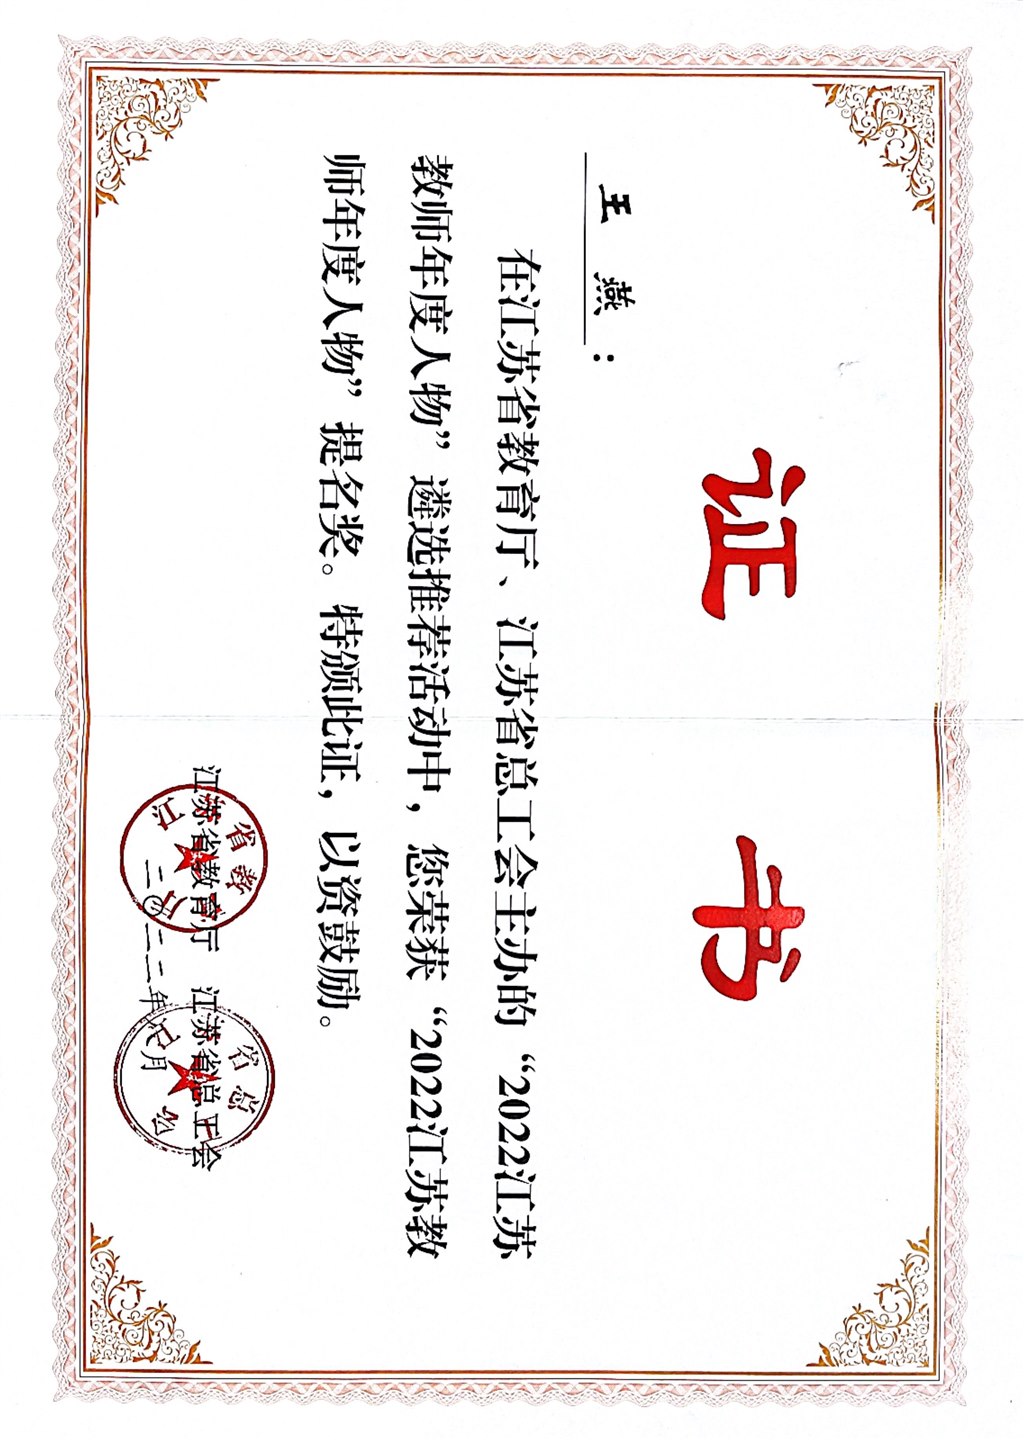 证书
王 燕：
在江苏省教育厅、江苏省总工会主办的“2022江苏
教师年度人物”遴选推荐活动中，您荣获“2022江苏教
师年度人物”提名奖。特颁此证，以资鼓励。
江苏省教育厅 江苏省总工会